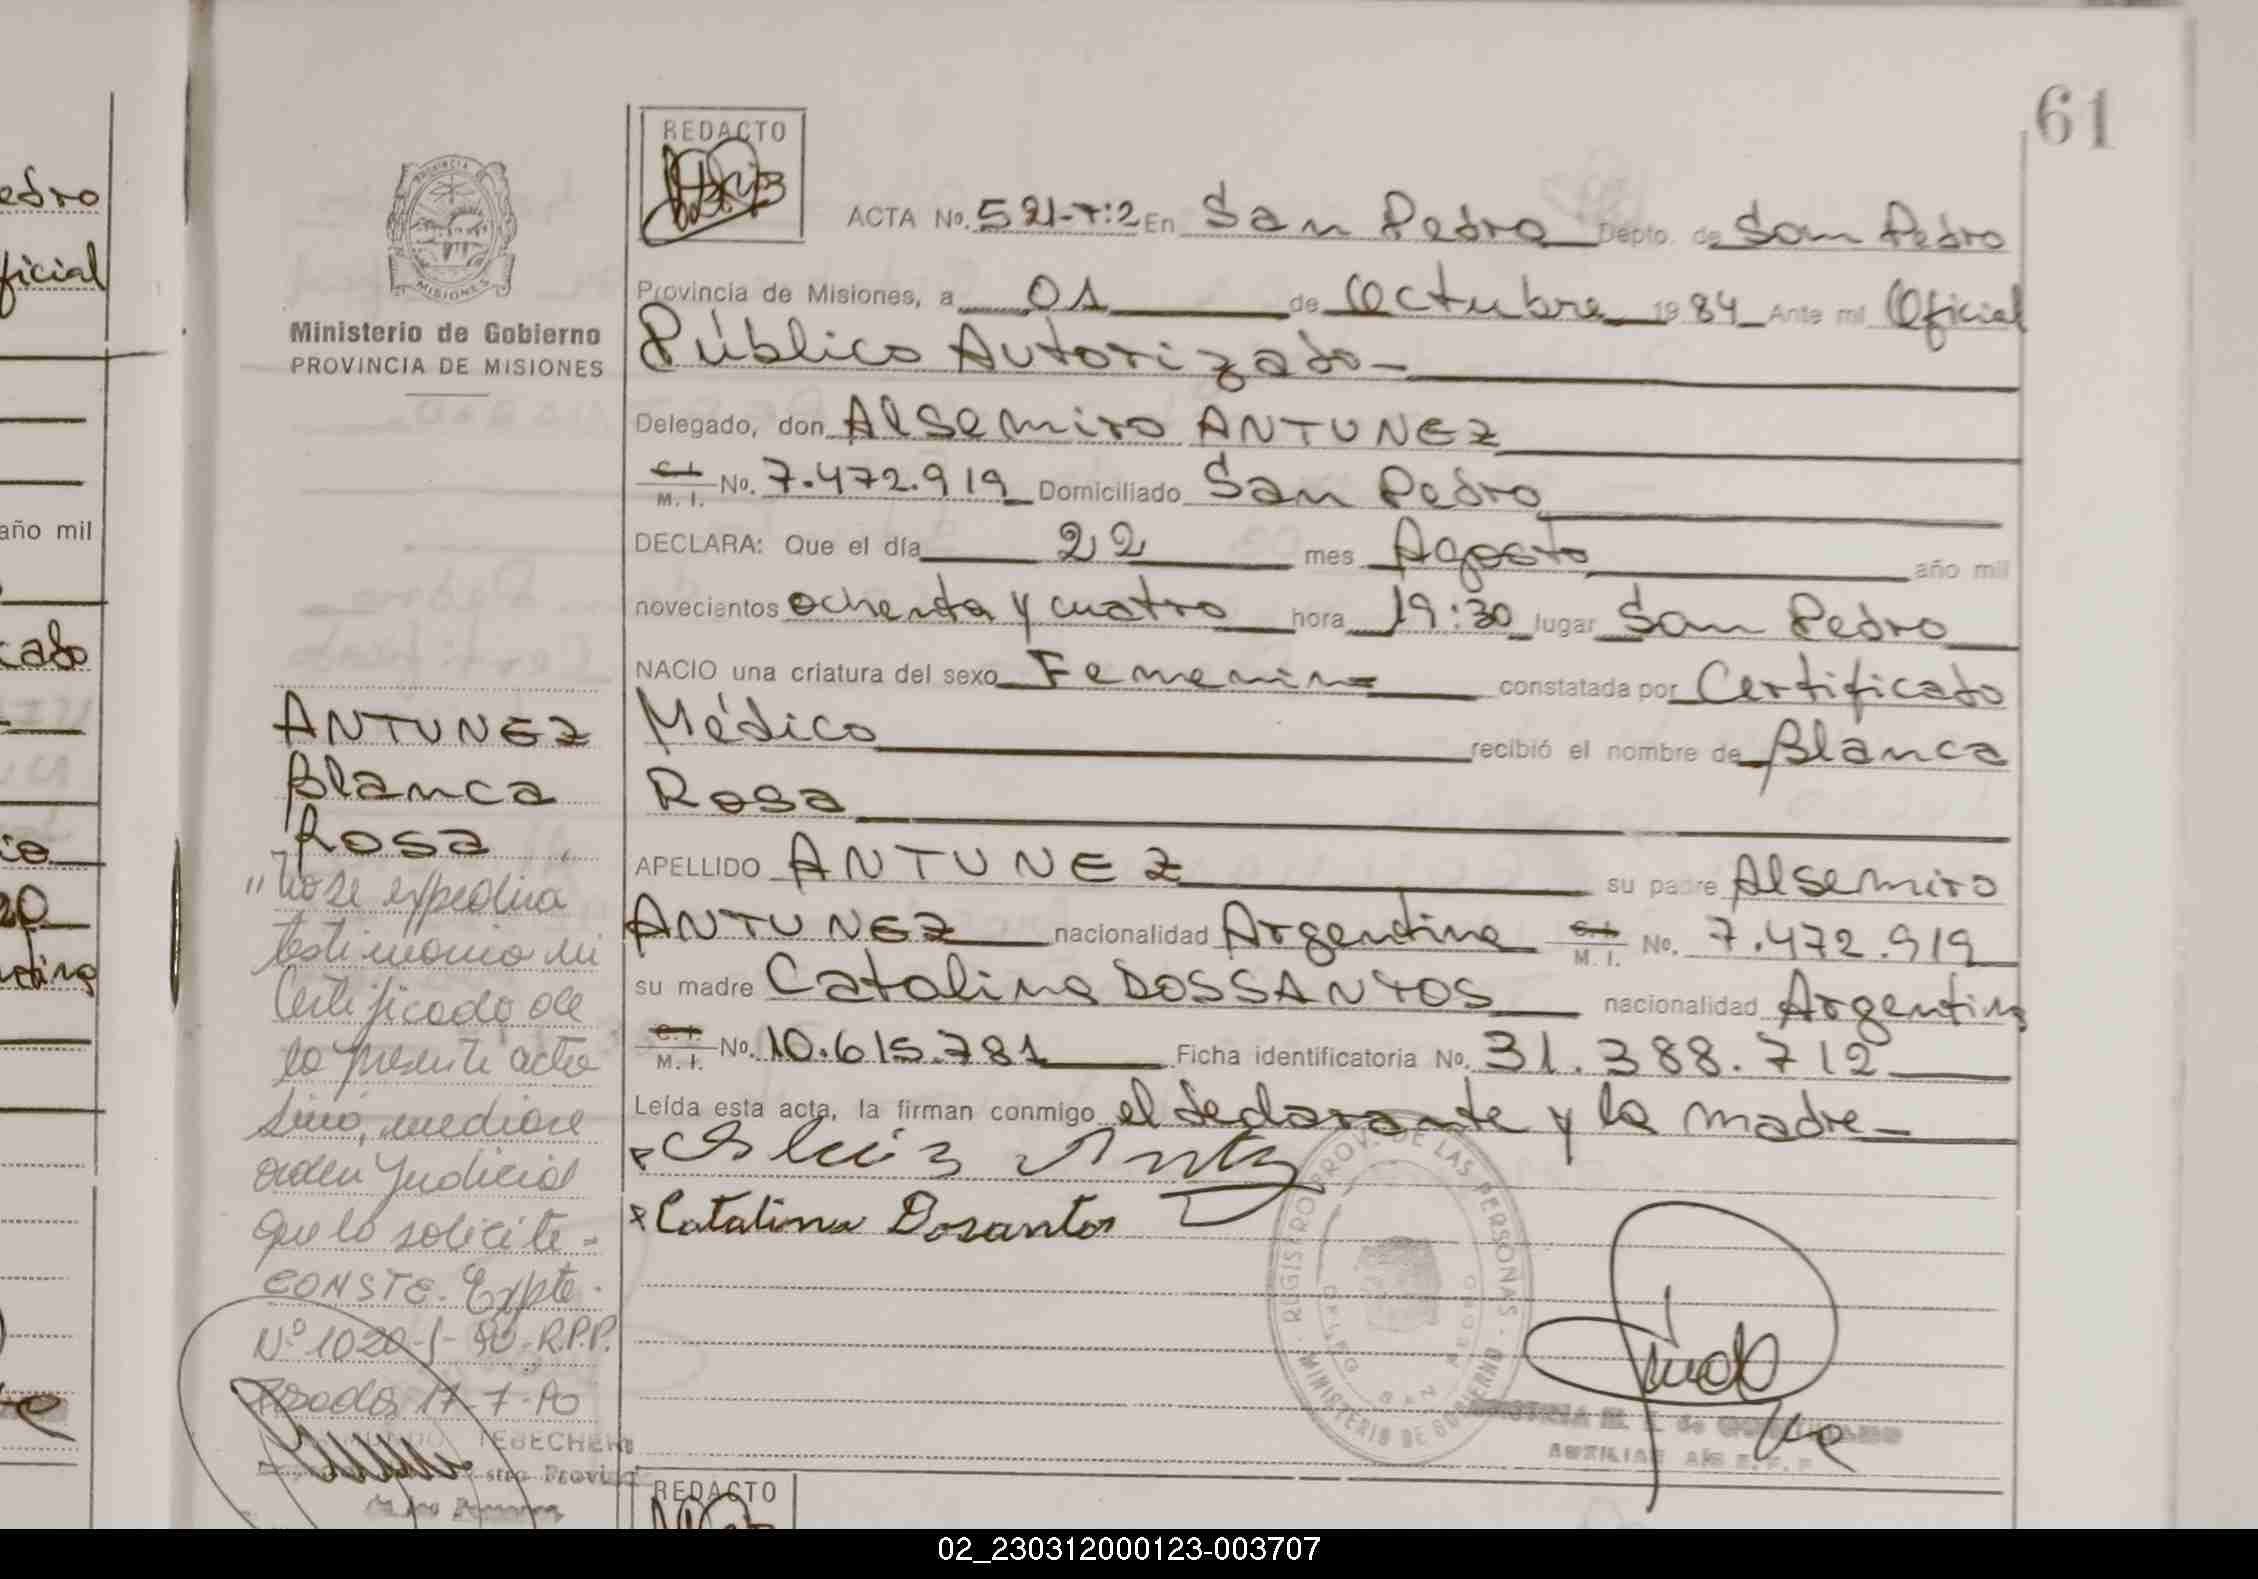 61
REDACTO
ACTA No. 521-T:2 En San Pedro Depto. de San Pedro
Provincia de Misiones, a 01 de Octubre 1984 Ante mi Oficial
Público Autorizado
Delegado, don Alsemiro ANTUNEZ
C. I. M. I. No. 7.472.919 Domiciliado San Pedro
DECLARA: Que el día 22 mes Agosto año mil
novecientos ochenta y cuatro hora 19:30 lugar San Pedro
NACIO una criatura del sexo Femenino constatada por Certificado
Médico recibió el nombre de Blanca
Rosa
APELLIDO ANTUNEZ su padre Alsemiro
ANTUNEZ nacionalidad Argentina C. I. M. I. No. 7.472.919
su madre Catalina DOSSANTOS nacionalidad Argentina
C. I. M. I. No. 10.615.781 Ficha identificatoria No. 31.388.712
Leída esta acta, la firman conmigo el declarante y la madre
Catalina Dosantos
REGISTRO PROV. DE LAS PERSONAS
MINISTERIO DE GOBIERNO
AUXILIAR
REDACTO
PROVINCIA
MISIONES
Ministerio de Gobierno
PROVINCIA DE MISIONES
ANTUNEZ
Blanca
Rosa
"No se expedirá
testimonio ni
Certificado de
la presente acta
sinó, mediare
orden Judicial
que lo solicite -
CONSTE. Expte.
Nº 1020-J-90-R.P.P.
Posadas 17-7-90
TEBECHERI
edro
ficial
año mil
cado
ntina
02_230312000123-003707